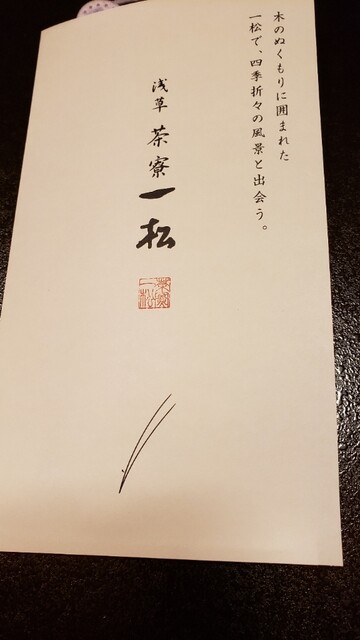 木のぬくもりに囲まれた
一松で、四季折々の風景と出会う。
浅草 茶寮 一松